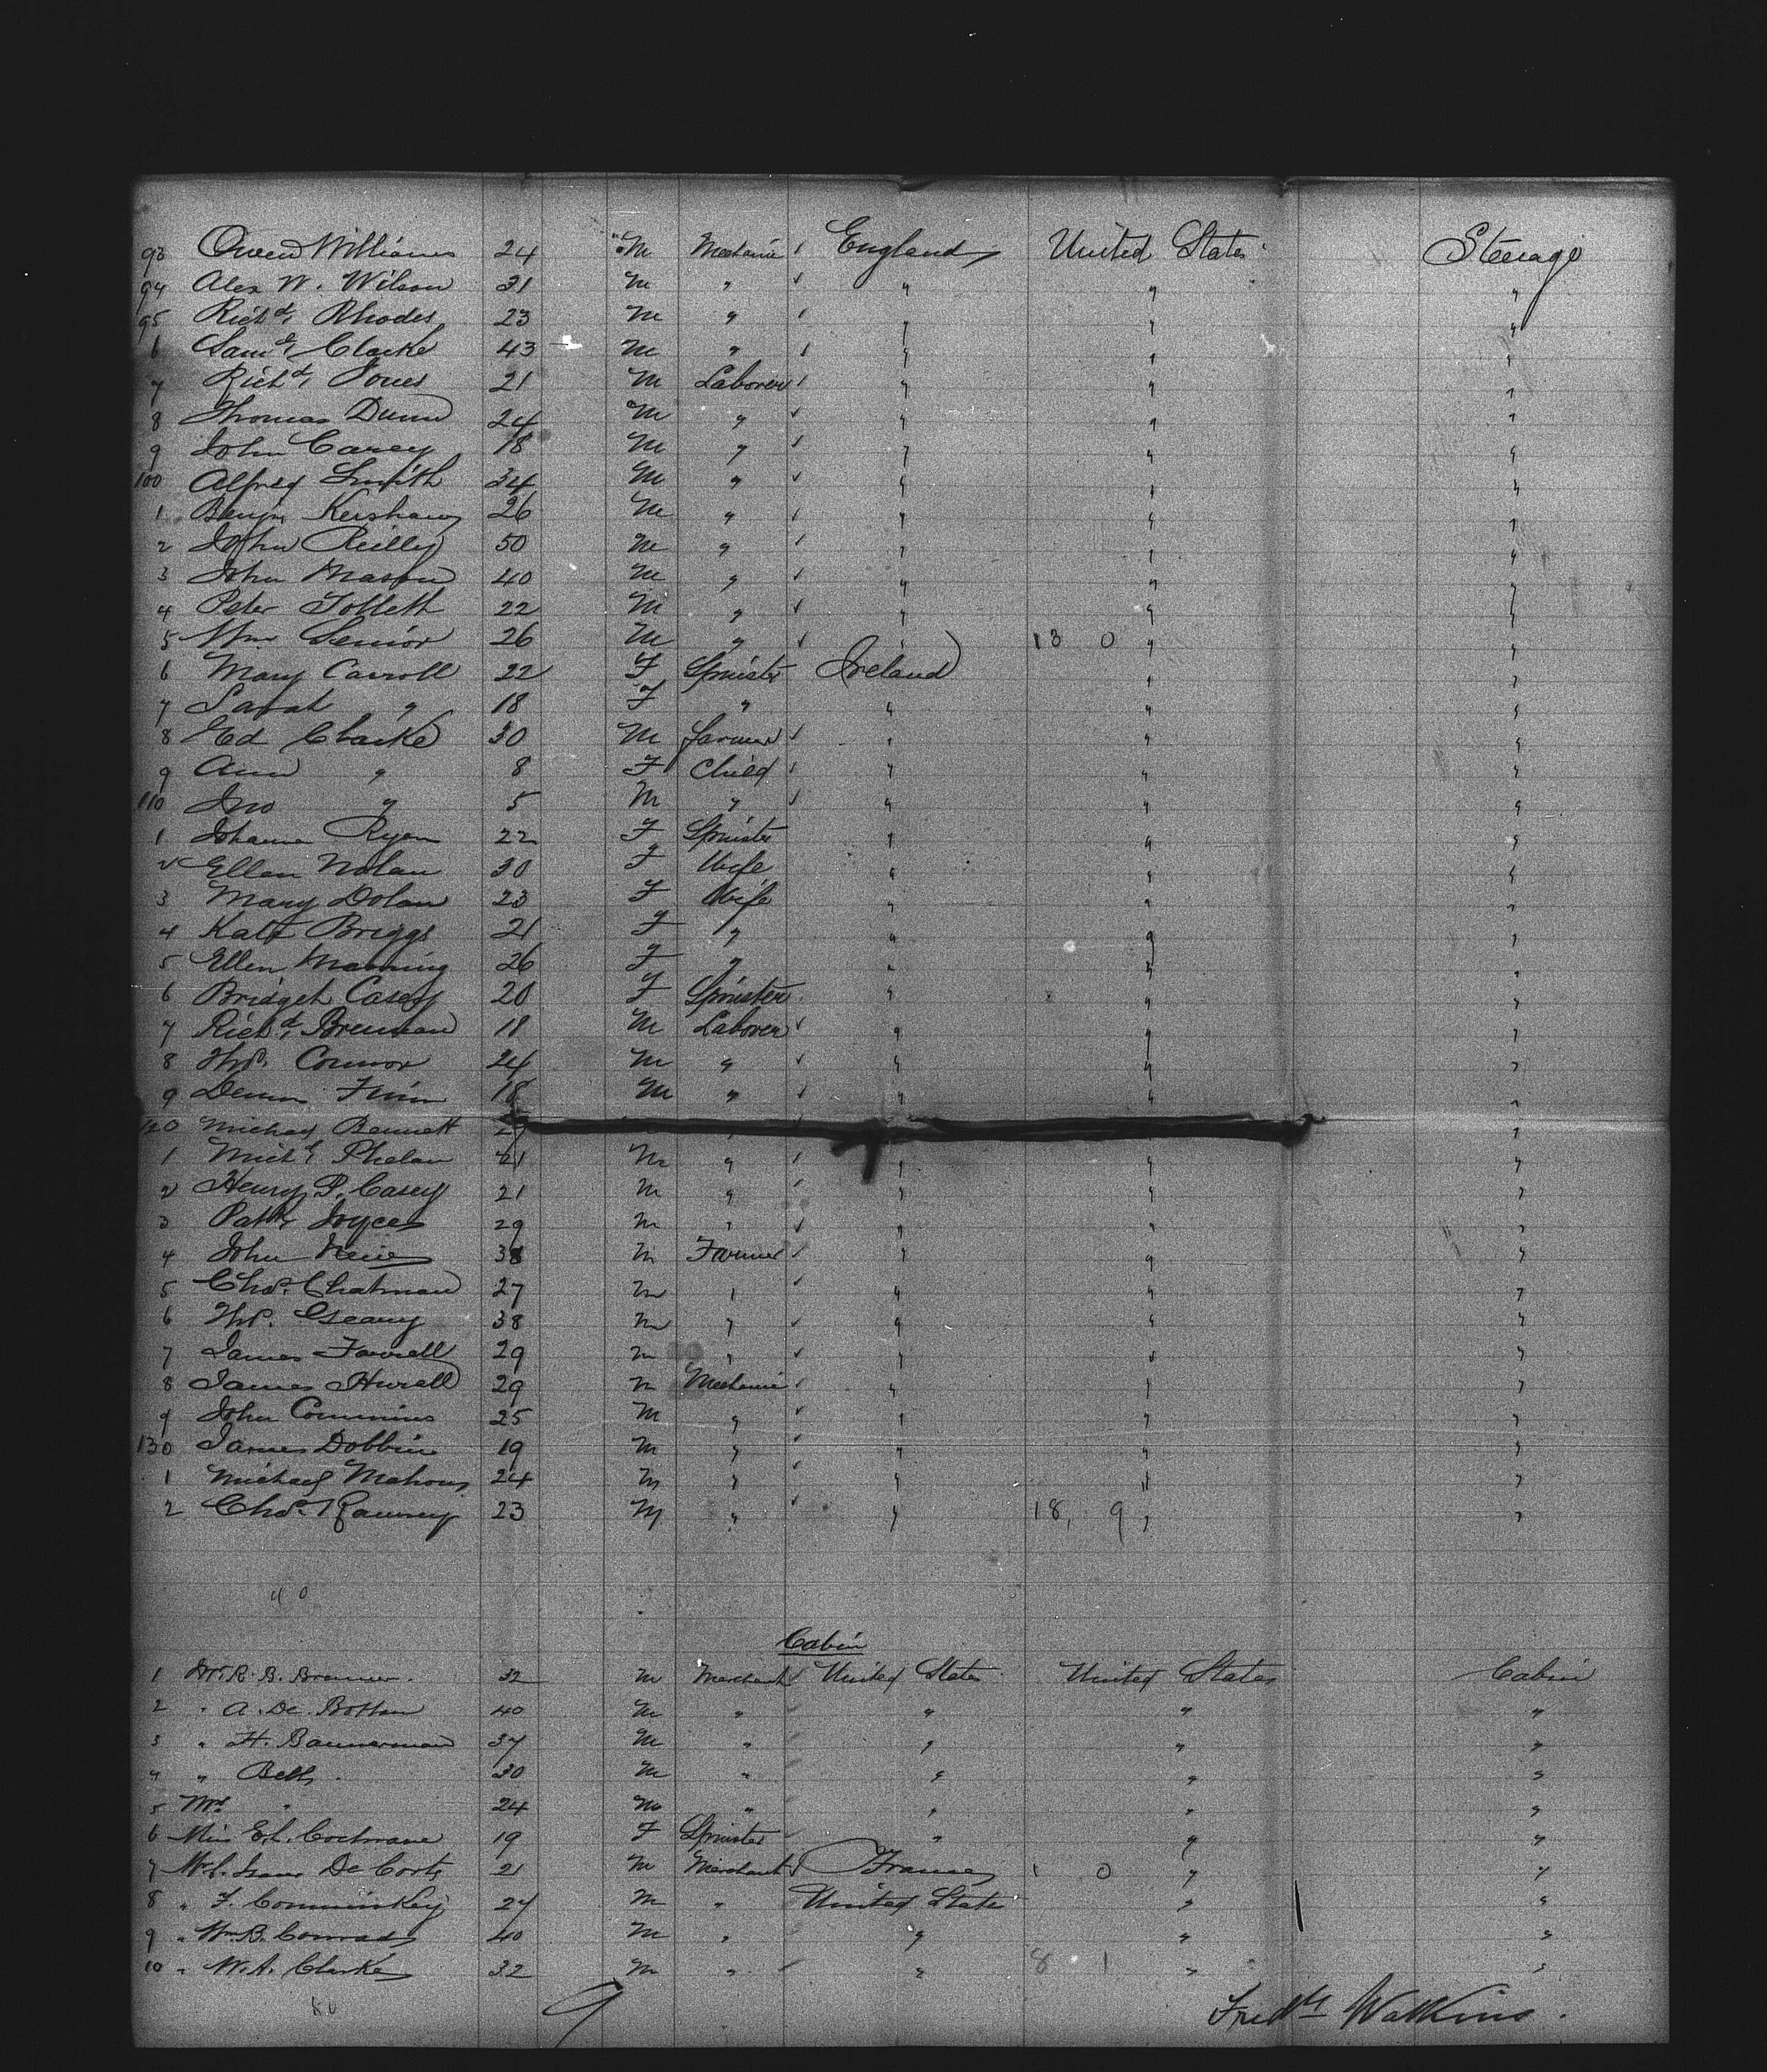 93 Owen Williams 24 M Mechanic England United States Steerage
94 Alex W. Wilson 31 M " " " "
95 Richd Rhodes 23 M " " " "
6 Saml Clarke 43 M " " " "
7 Richd Jones 21 M Laborer " " "
8 Thomas Dunn 24 M " " " "
9 John Carey 18 M " " " "
100 Alfred Smith 34 M " " " "
1 Benjn Kershaw 26 M " " " "
2 John Reilly 50 M " " " "
3 John Mason 40 M " " " "
4 Peter Tollett 22 M " " " "
5 Wm Senior 26 M " " 13 0 " "
6 Mary Carroll 22 F Spinster Ireland " "
7 Sarah " 18 F " " " "
8 Ed Clarke 30 M Farmer " " "
9 Ann " 8 F Child " " "
110 Jno " 5 M " " " "
1 Johanna Ryan 22 F Spinster " " "
2 Ellen Nolan 30 F Wife " " "
3 Mary Dolan 23 F Wife " " "
4 Kate Briggs 21 F " " " "
5 Ellen Manning 26 F " " " "
6 Bridget Casey 20 F Spinster " " "
7 Richd Brennan 18 M Laborer " " "
8 Thos. Connor 24 M " " " "
9 Denis Finn 18 M " " " "
120 Michael Bennett " "
1 Michl Phelan 21 M " " " "
2 Henry P. Casey 21 M " " " "
3 Patk Joyce 29 M " " " "
4 John 38 M Farmer " " "
5 Chas. Chatman 27 M " " " "
6 Thos. Geary 38 M " " " "
7 James Farrell 29 M " " " "
8 James Hurell 29 M Mechanic " " "
9 John Commins 25 M " " " "
130 James Dobbin 19 M " " " "
1 Michael Mahony 24 M " " " "
2 Chas. 23 M " " 18, 9 " "
40
Cabin
1 Mr. R. B. 32 M Merchant United States United States Cabin
2 " A. De. Botton 40 M " " " "
3 " H. Bannerman 37 M " " " "
4 " Betts 30 M " " " "
5 Mrs " 24 M " " " "
6 Miss E. L. Cochrane 19 F Spinster " " "
7 Mr. De Corte 21 M Merchant France 1 0 " "
8 " F. Comminkey 27 M " United State " "
9 " Wm B. Conrad 40 M " " " "
10 " W. A. Clarke 32 M " " 8 1 " "
50 9 Fredk Watkins.